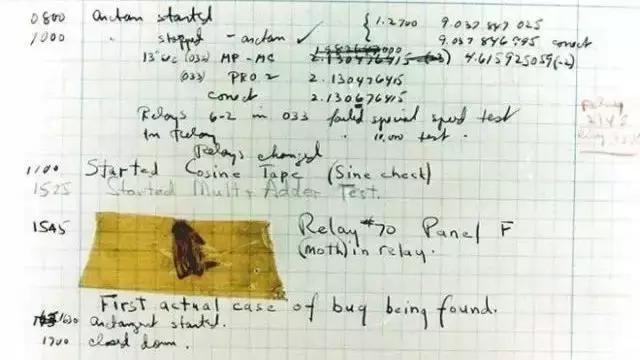 0800 arctan started { 1.2700 9.037 847 025
1000 " stopped - arctan ✓ 9.037 846 995 correct
13"uc (032) MP - MC 2.130476415 4.615925059(-2)
(033) PRO 2 2.130476415
correct 2.130676415
Relays 6-2 in 033 failed special speed test
In Relay " 10,000 test .
Relays changed
1100 Started Cosine Tape (Sine check)
1525 Started Mult + Adder Test.
1545 Relay #70 Panel F
(Moth) in relay.
First actual case of bug being found.
1630 arctangent started.
1700 closed down .